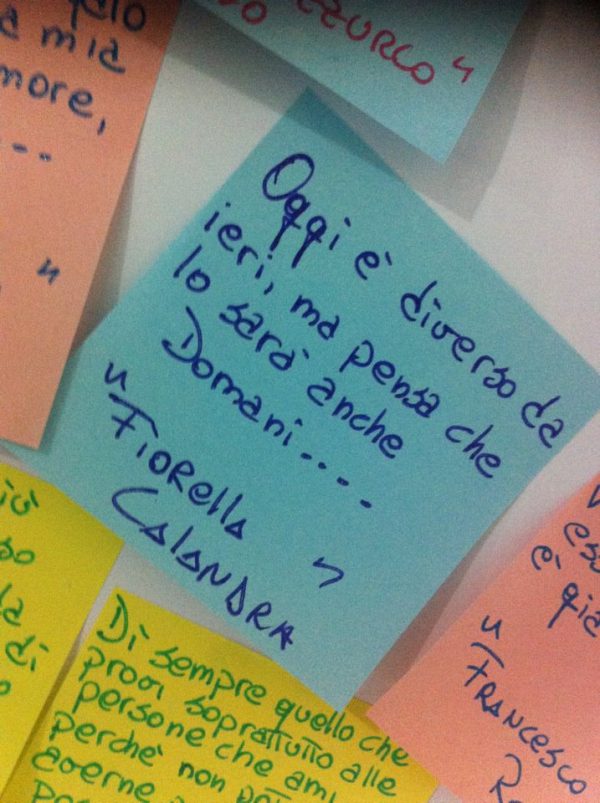 a mia
more,
....
"
ZZURRO"
Oggi è diverso da
ieri, ma pensa che
lo sarà anche
Domani....
"FIORella
CALANDRA"
di
Dì sempre quello che
provi soprattutto alle
persone che ami
perchè non
averne
è già
"FRANCESCO
R